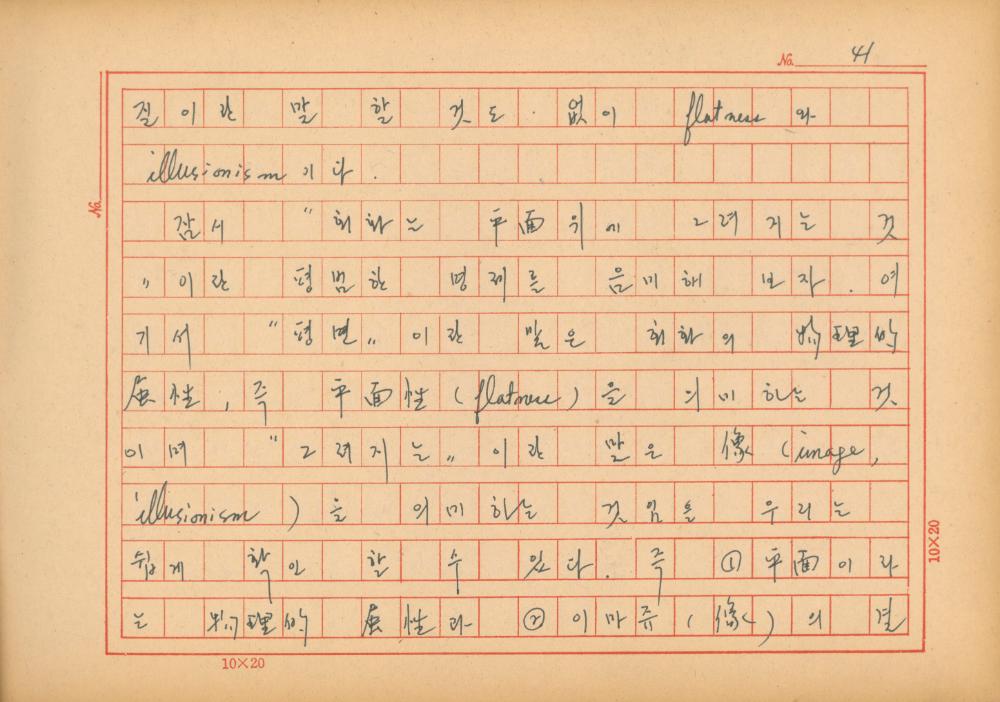 No. 41
질이란 말 할 것도 없이 flatness 와
illusionism 이다.
잠시 "회화는 平面위에 그려지는 것
"이란 평범한 명제를 음미해 보자. 여
기서 "평면"이란 말은 회화의 物理的
属性, 즉 平面性(flatness)을 의미하는 것
이며 "그려지는"이란 말은 像(image,
illusionism)를 의미하는 것임을 우리는
쉽게 확인 할 수 있다. 즉 ① 平面이라
는 物理的 属性과 ② 이마쥬(像)의 결
No.
10×20
10×20